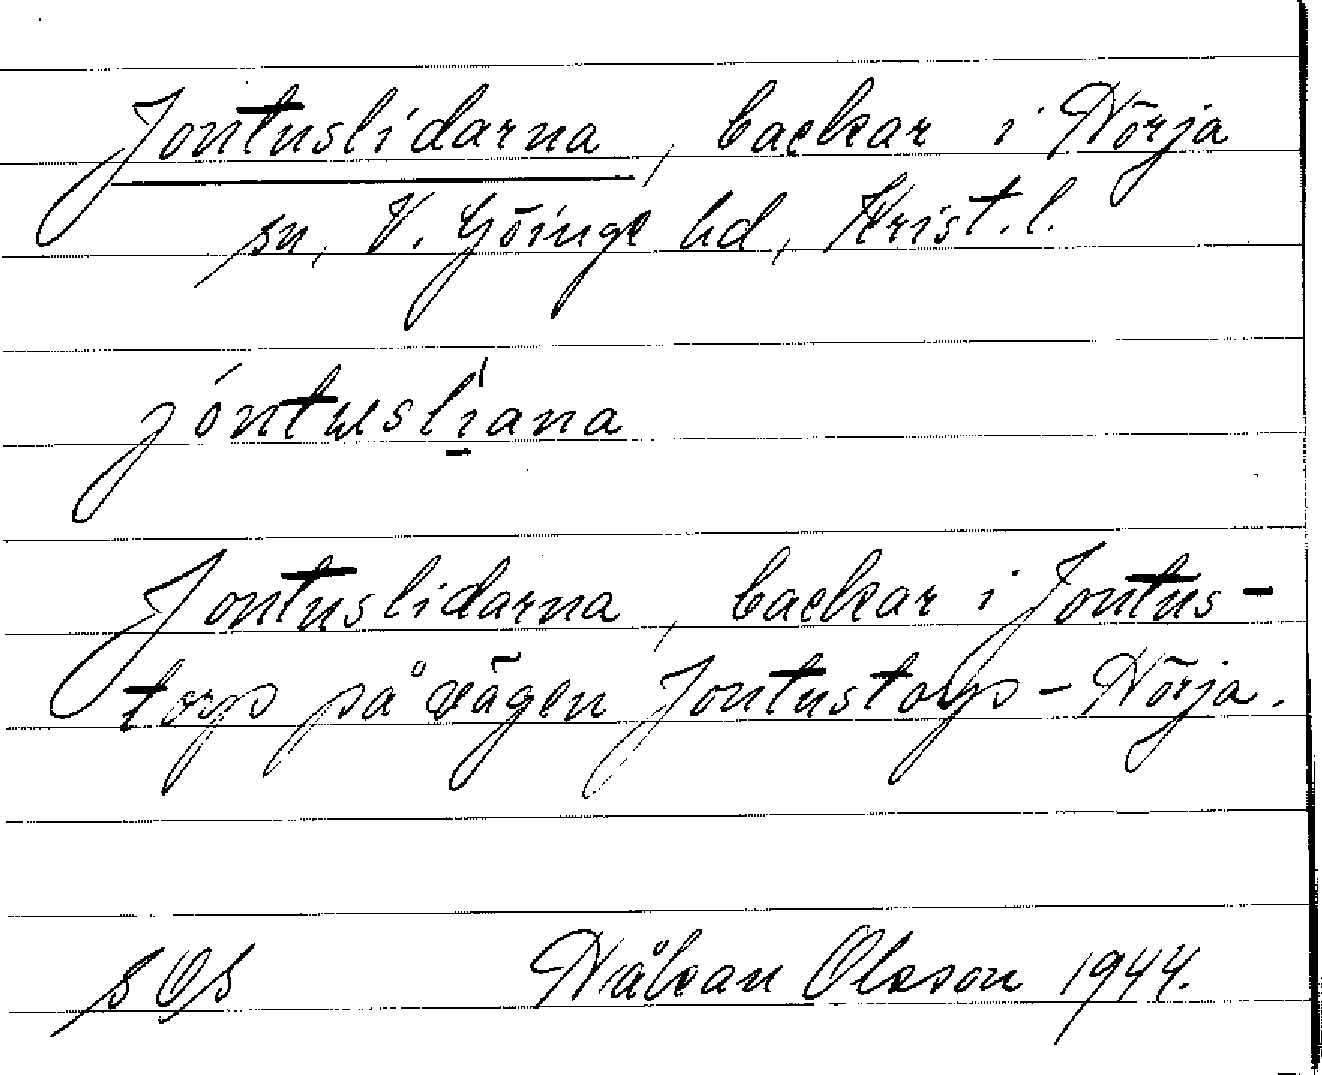 Jontuslidarna, backar i Nörja
sn, V. Göinge hd, Krist.l.
jóntuslíana
Jontuslidarna, backar i Jontus-
torp på vägen Jontustorp - Nörja.
Håkan Olsson 1944.